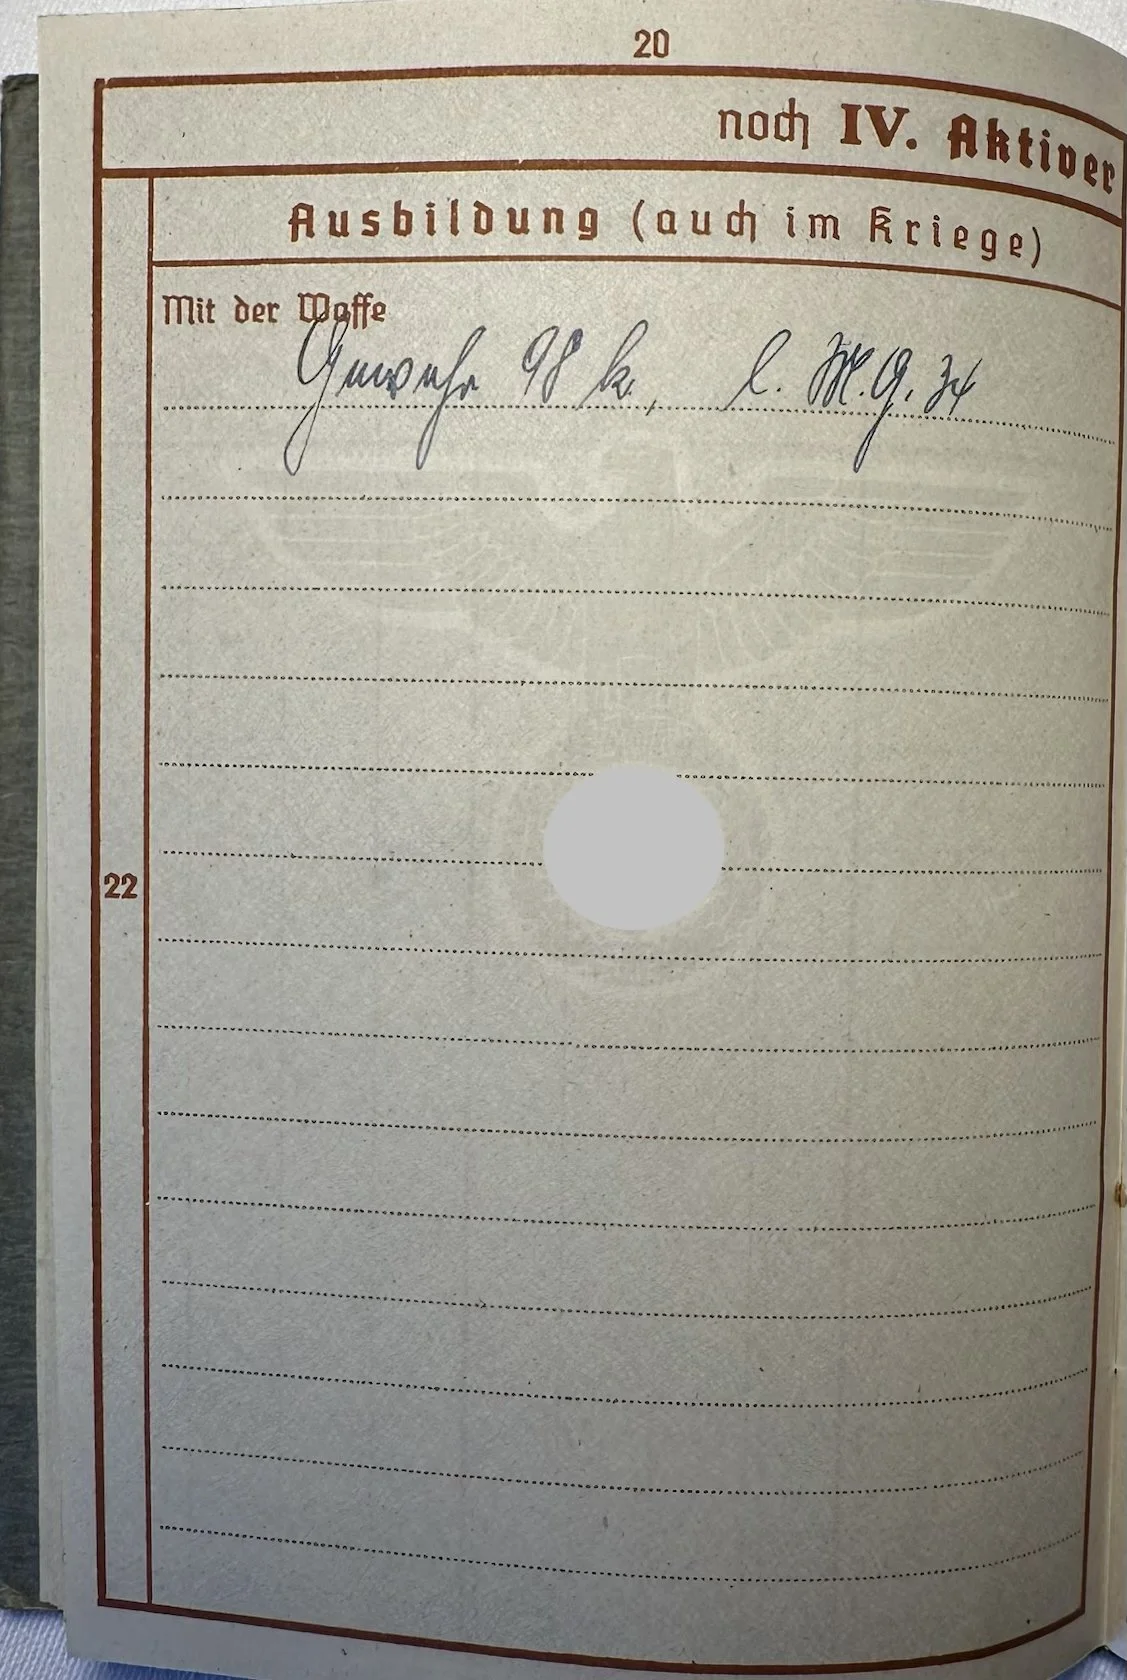 20
noch IV. Aktiver
Ausbildung (auch im Kriege)
Mit der Waffe
Gewehr 98 k., l. M.G. 34
22